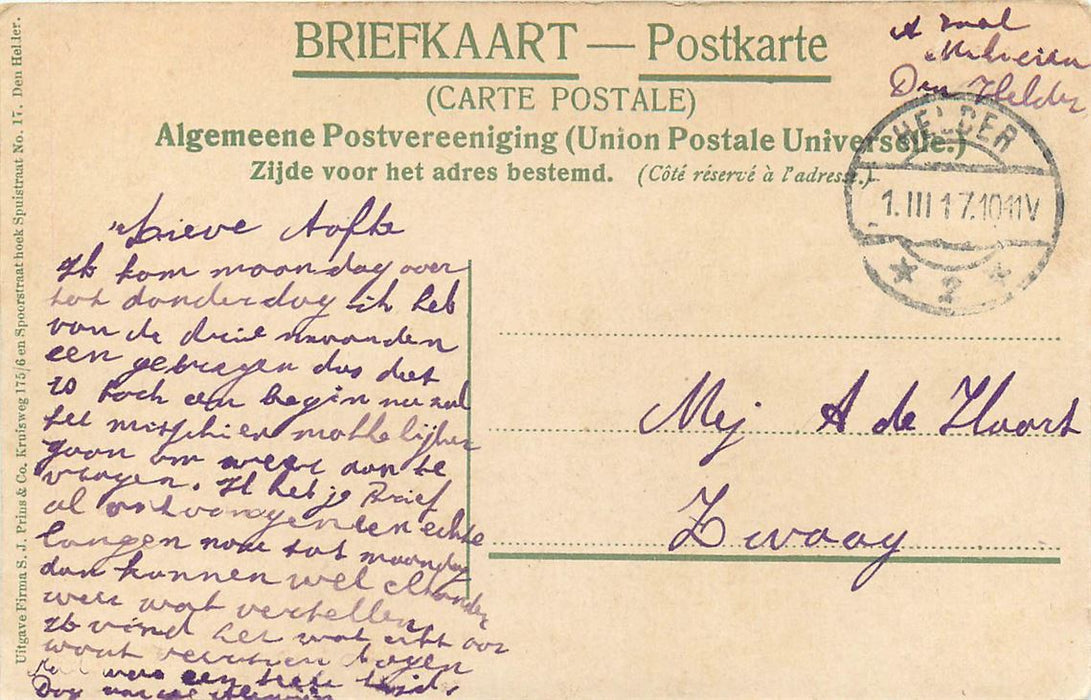 BRIEFKAART — Postkarte
(CARTE POSTALE)
Algemeene Postvereeniging (Union Postale Universelle.)
Zijde voor het adres bestemd. (Côté réservé à l'adresse.)
Uitgave Firma S. J. Prins & Co. Kruisweg 175/6 en Spoorstraat hoek Spuistraat No. 17. Den Helder.
A
Den Helder
HELDER
1.III 17.10-11V
2
Lieve Aafke
Ik kom maandag over
tot donderdag ik heb
van de drie maanden
een gekregen dus dat
is toch een begin nu zal
het misschien makkelijker
gaan om weer aan te
vragen. Ik heb je Brief
al ontvangen een echte
langen nou tot maandag
dan kunnen wel elkander
weer wat vertellen
ik vind het wat
want
een
Dag
Mej A de Haart
Zwaag